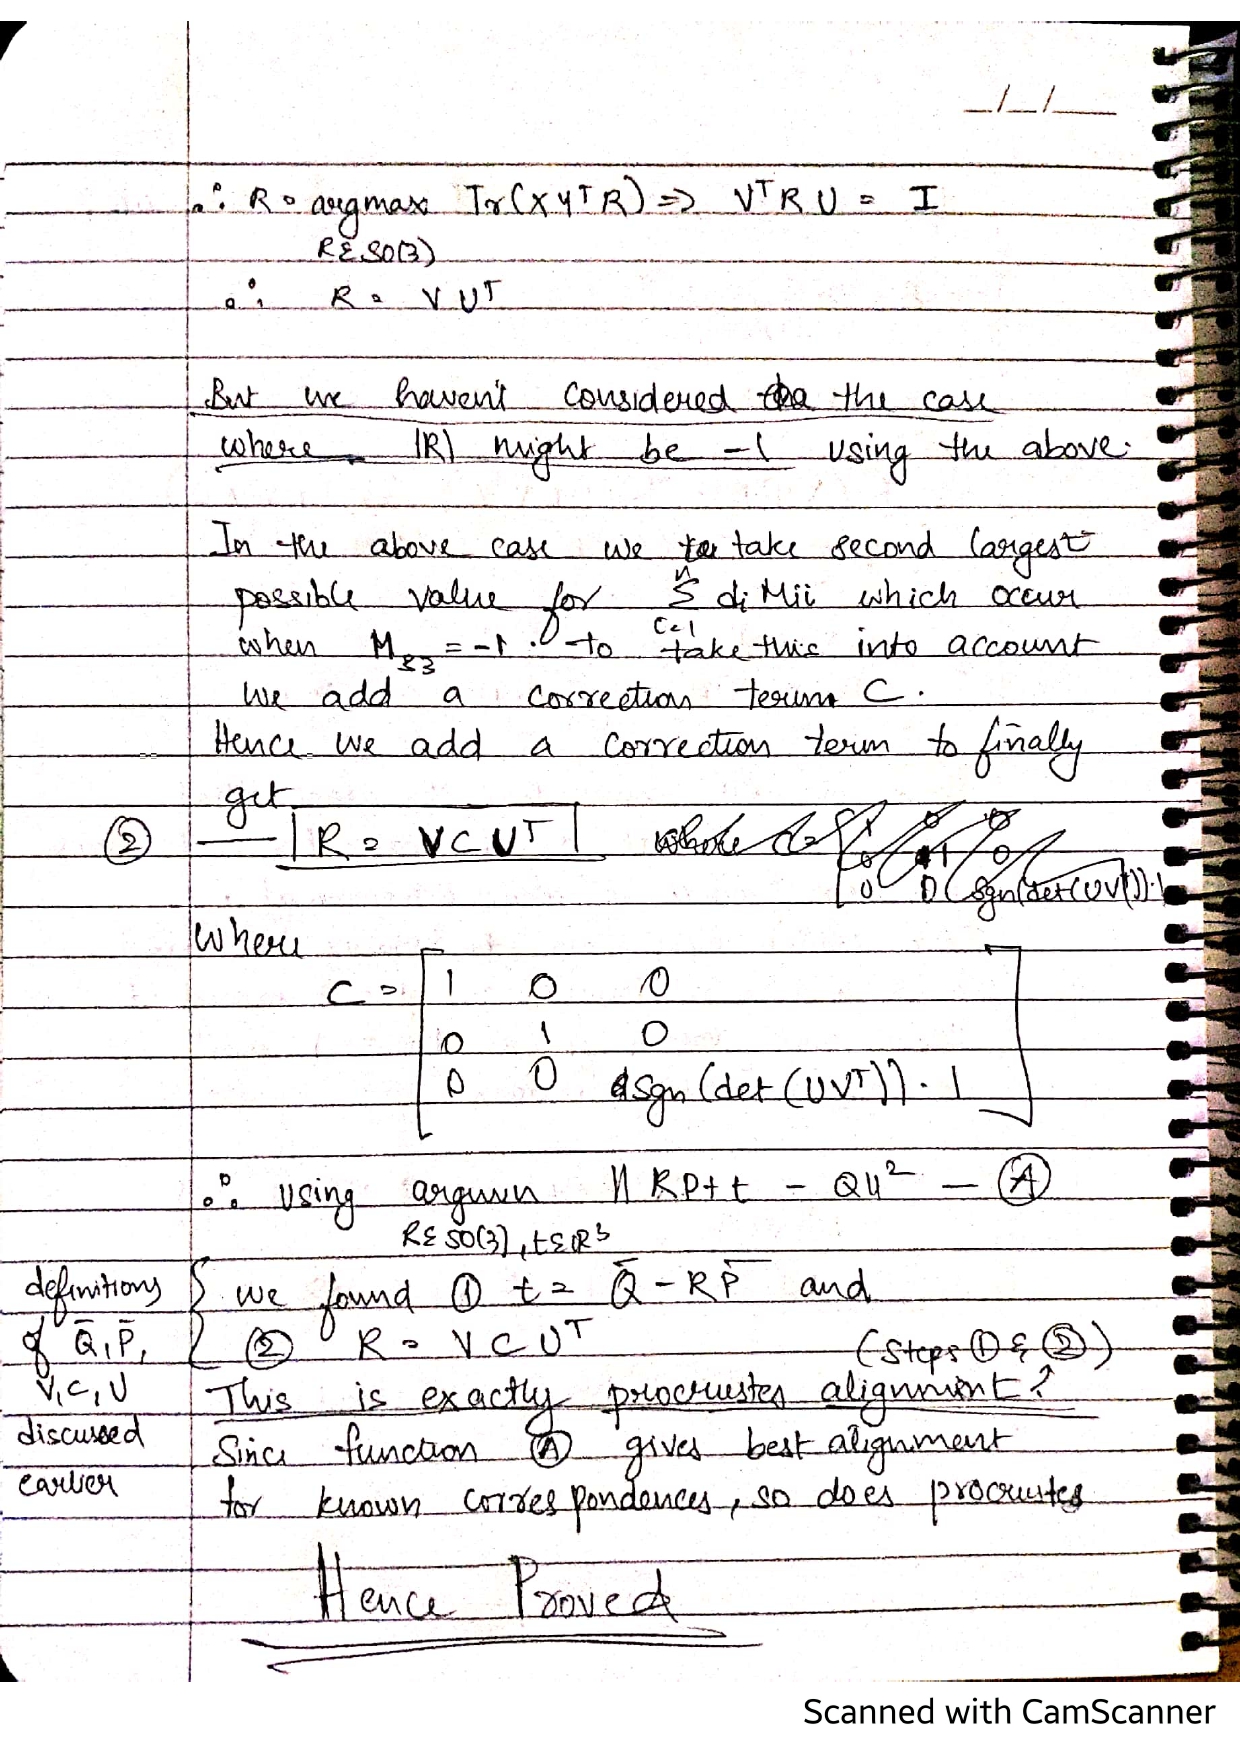 _/_/__
∴ R = argmax Tr(XYᵀR) => VᵀRU = I
RεSO(3)
∴ R = VUᵀ
But we haven't considered the case
where |R| might be -1 using the above.
In the above case we take second largest
possible value for Σ di Mii which occur
n
i=1
when M₃₃ = -1. to take this into account
we add a correction term C.
Hence we add a correction term to finally
get
② — R = VCUᵀ
where
C = [ 1 0 0
0 1 0
0 0 sgn(det(UVᵀ)).1 ]
∴ using argmin || RP+t - Q||² — Ⓐ
Rε SO(3), tεR³
definitions { we found ① t = Q̄ - RP̄ and
of Q̄, P̄, ② R = VCUᵀ (Steps ① & ②)
V, C, U This is exactly procrustes alignment?
discussed Since function Ⓐ gives best alignment
earlier for known correspondences, so does procrustes
Hence Proved
Scanned with CamScanner